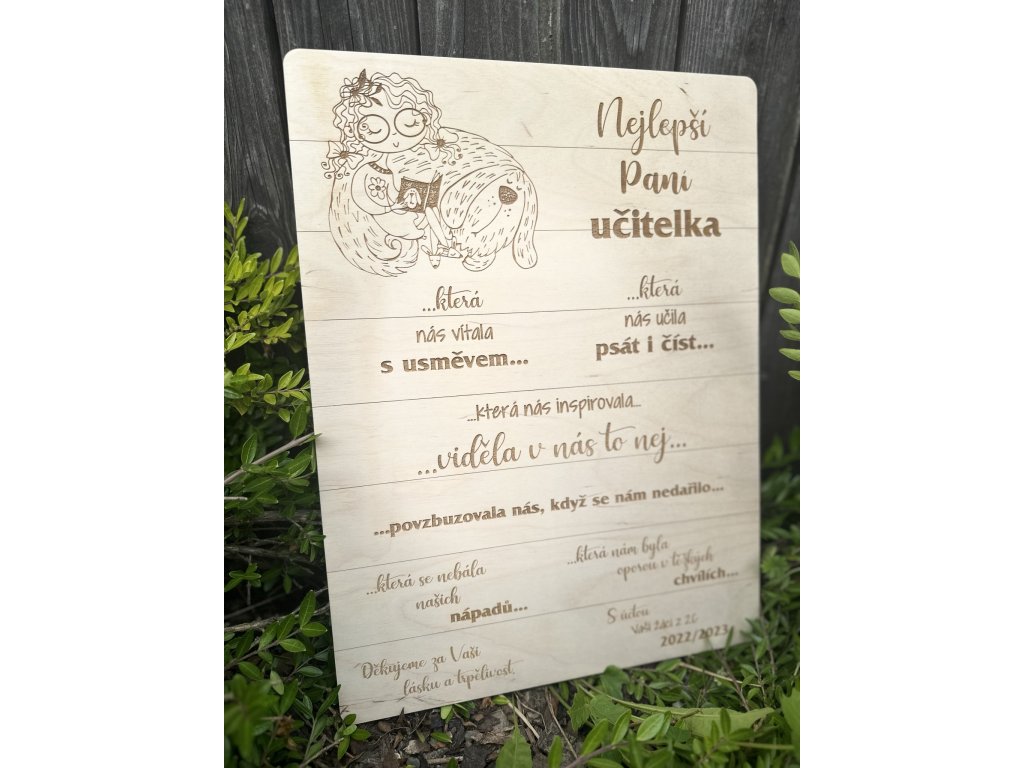 Nejlepší
Paní
učitelka
...která
nás vítala
s usměvem...
...která
nás učila
psát i číst...
...která nás inspirovala...
...viděla v nás to nej...
...povzbuzovala nás, když se nám nedařilo...
...která se nebála
našich
nápadů...
...která nám byla
oporou v těžkých
chvílích...
Děkujeme za Vaši
lásku a trpělivost.
S úctou
Vaši žáci z
2022/2023